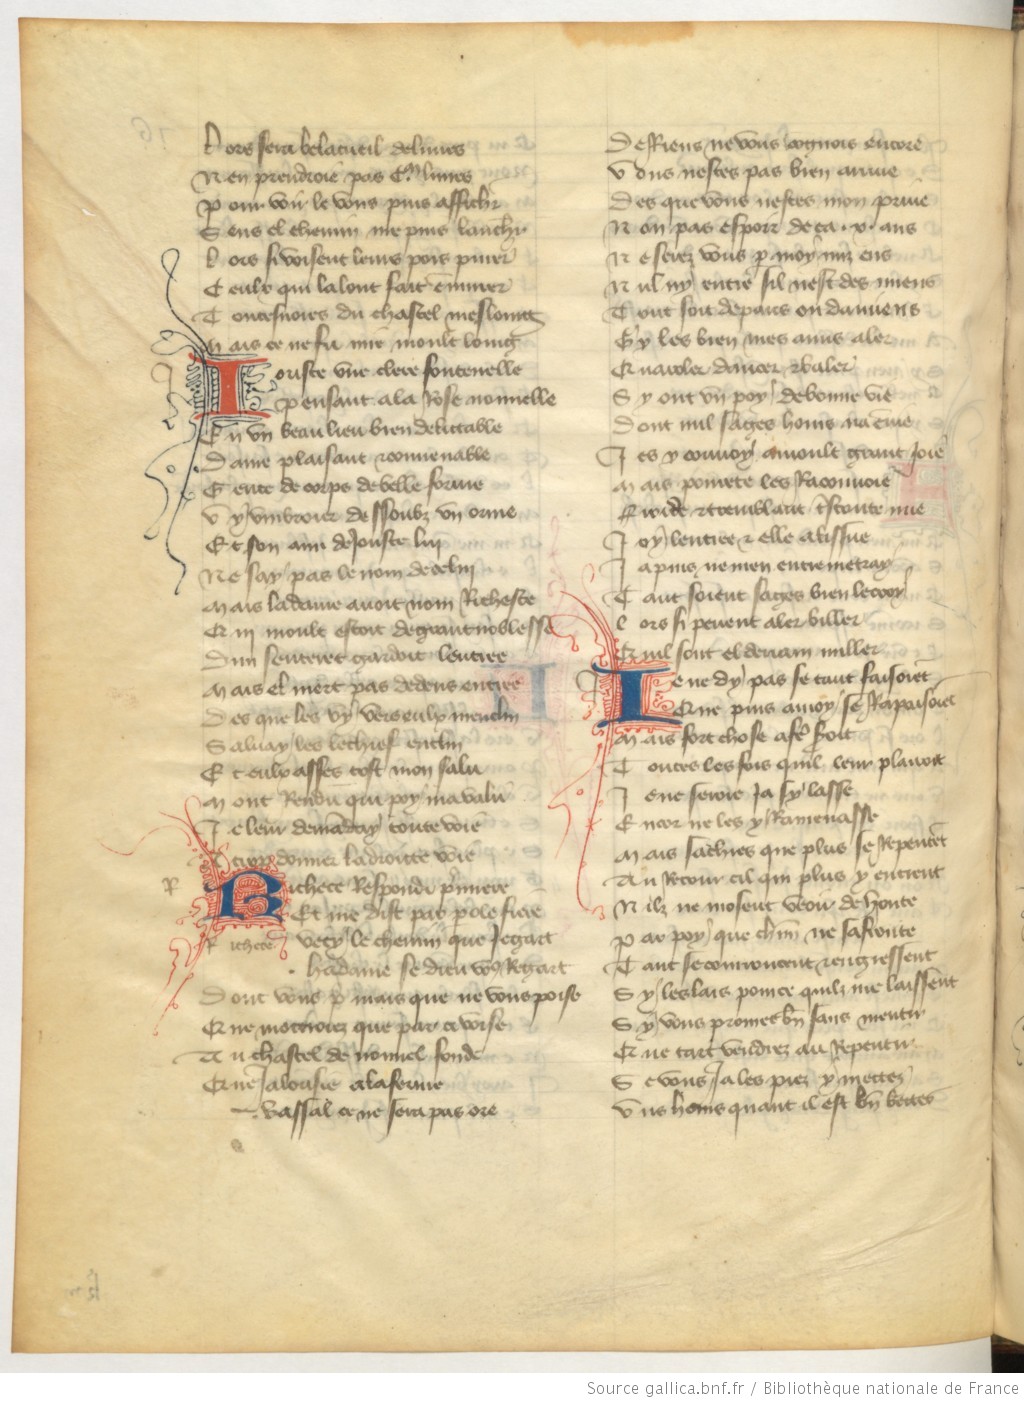 Lors sera belacueil delivres
N en prendroie pas Cm livres
P our voir le vous puis affichr
S ens el chemin me puis lanchr
L ors si voisent leurs pois piner
C eulx qui lalont fait enmurer
T outesvoies du chastel meslonig
M ais ce ne fu mie moult loing
Jouste une clere fontenelle
Pensant a la Rose nouvelle
E n un beau lieu bien delictable
D ame plaisant et convenable
G ente de corps de belle forme
V y umbroier dessoubz un orme
E t son ami de Jouste lui
N e say pas le nom de celui
M ais la dame avoit nom Richesce
Et moult estoit de grant noblesse
D un senteret gardoit lentree
M ais el niert pas dedens entree
D es que les vy vers eulx menclin
S aluay les le chief enclin
E t eulx asses tost mon salu
M ont Rendu qui poy ma valu
J e leur demanday toute voie
A trop donner la droitte voie
R
Richece Respondi premiere
Et me dist par parole fiere
Richece
Vecy le chemin que Je gart
ha dame se dieu vous Regart
D ont vous pri mais que ne vous poise
Et ne mottroiez que par ci voise
A u chastel de nouvel fonde
Et ne Jalousie a la ferme
Vassal ce ne sera pas ore
D e Riens ne vous cognois encore
V ous nestes pas bien arrive
D es que vous nestes mon prive
N on pas espoir de ca .x. ans
N e serez vous par moy mis ens
N ul ny entre sil nest des miens
T out soit de paris ou damiens
G y les bien mes amis aler
Et karoler dancer et baler
S y ont un poy de bonne vie
D ont nul sages homs na envie
J es y convoy a moult grant Joie
M ais povrete les Raconvoie
F roide et tremblant trestoute nue
J oy lentree et elle a lissue
J a puis ne men entremetray
T ant soient sages bien le croy
L ors si pevent aler biller
Quil sont el devant miller
Je ne dy pas se tant faisoient
Et ne puis a moy se Rapaisoient
M ais fort chose a fere seroit
T outes les fois quil leur plairoit
J e ne seroie Ja sy lasse
E ncor ne les y Ramenasse
M ais sachies que plus se Repentent
A u Retour cil qui plus y entrent
N ilz ne mosent veoir de honte
P ar poy que chascun ne saffronte
T ant se courroucent et engressent
S y les lais pource quilz me laissent
S y vous promes bien sans mentir
Et ne tart vendrez au Repentir
S e vous Ja les piez y mettez
V ns homs quant il est bien bettes
Source gallica.bnf.fr / Bibliothèque nationale de France